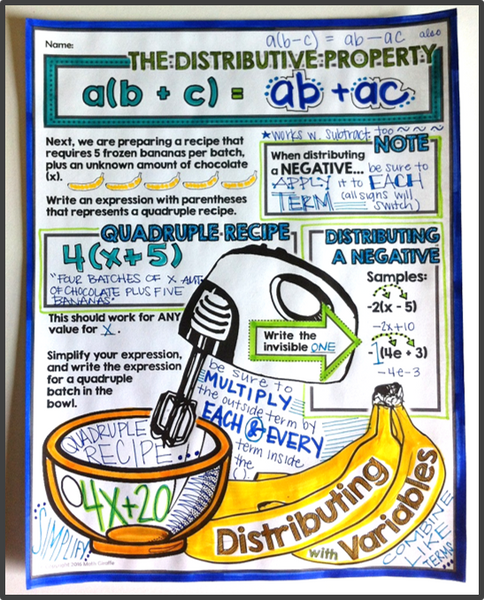 Name:
a(b-c) = ab-ac also
THE DISTRIBUTIVE PROPERTY
a(b + c) = ab + ac
★works w. subtract. too ~ ~ ~ ~
Next, we are preparing a recipe that
requires 5 frozen bananas per batch,
plus an unknown amount of chocolate
(x).
Write an expression with parentheses
that represents a quadruple recipe.
NOTE
When distributing
a NEGATIVE... be sure to
APPLY it to EACH
TERM (all signs will
switch)
QUADRUPLE RECIPE
4(x+5)
"FOUR BATCHES OF X AMT.
OF CHOCOLATE PLUS FIVE
BANANAS"
This should work for ANY
value for x.
Simplify your expression,
and write the expression
for a quadruple
batch in the
bowl.
DISTRIBUTING
A NEGATIVE
Samples:
-2(x - 5)
-2x+10
-1(4e + 3)
-4e-3
Write the
invisible ONE
be sure to
MULTIPLY
the outside term by
EACH & EVERY
term inside
the
().
QUADRUPLE
RECIPE...
4X+20
SIMPLIFY
Distributing
with Variables
COMBINE
LIKE
TERMS
Copyright 2016 Math Giraffe